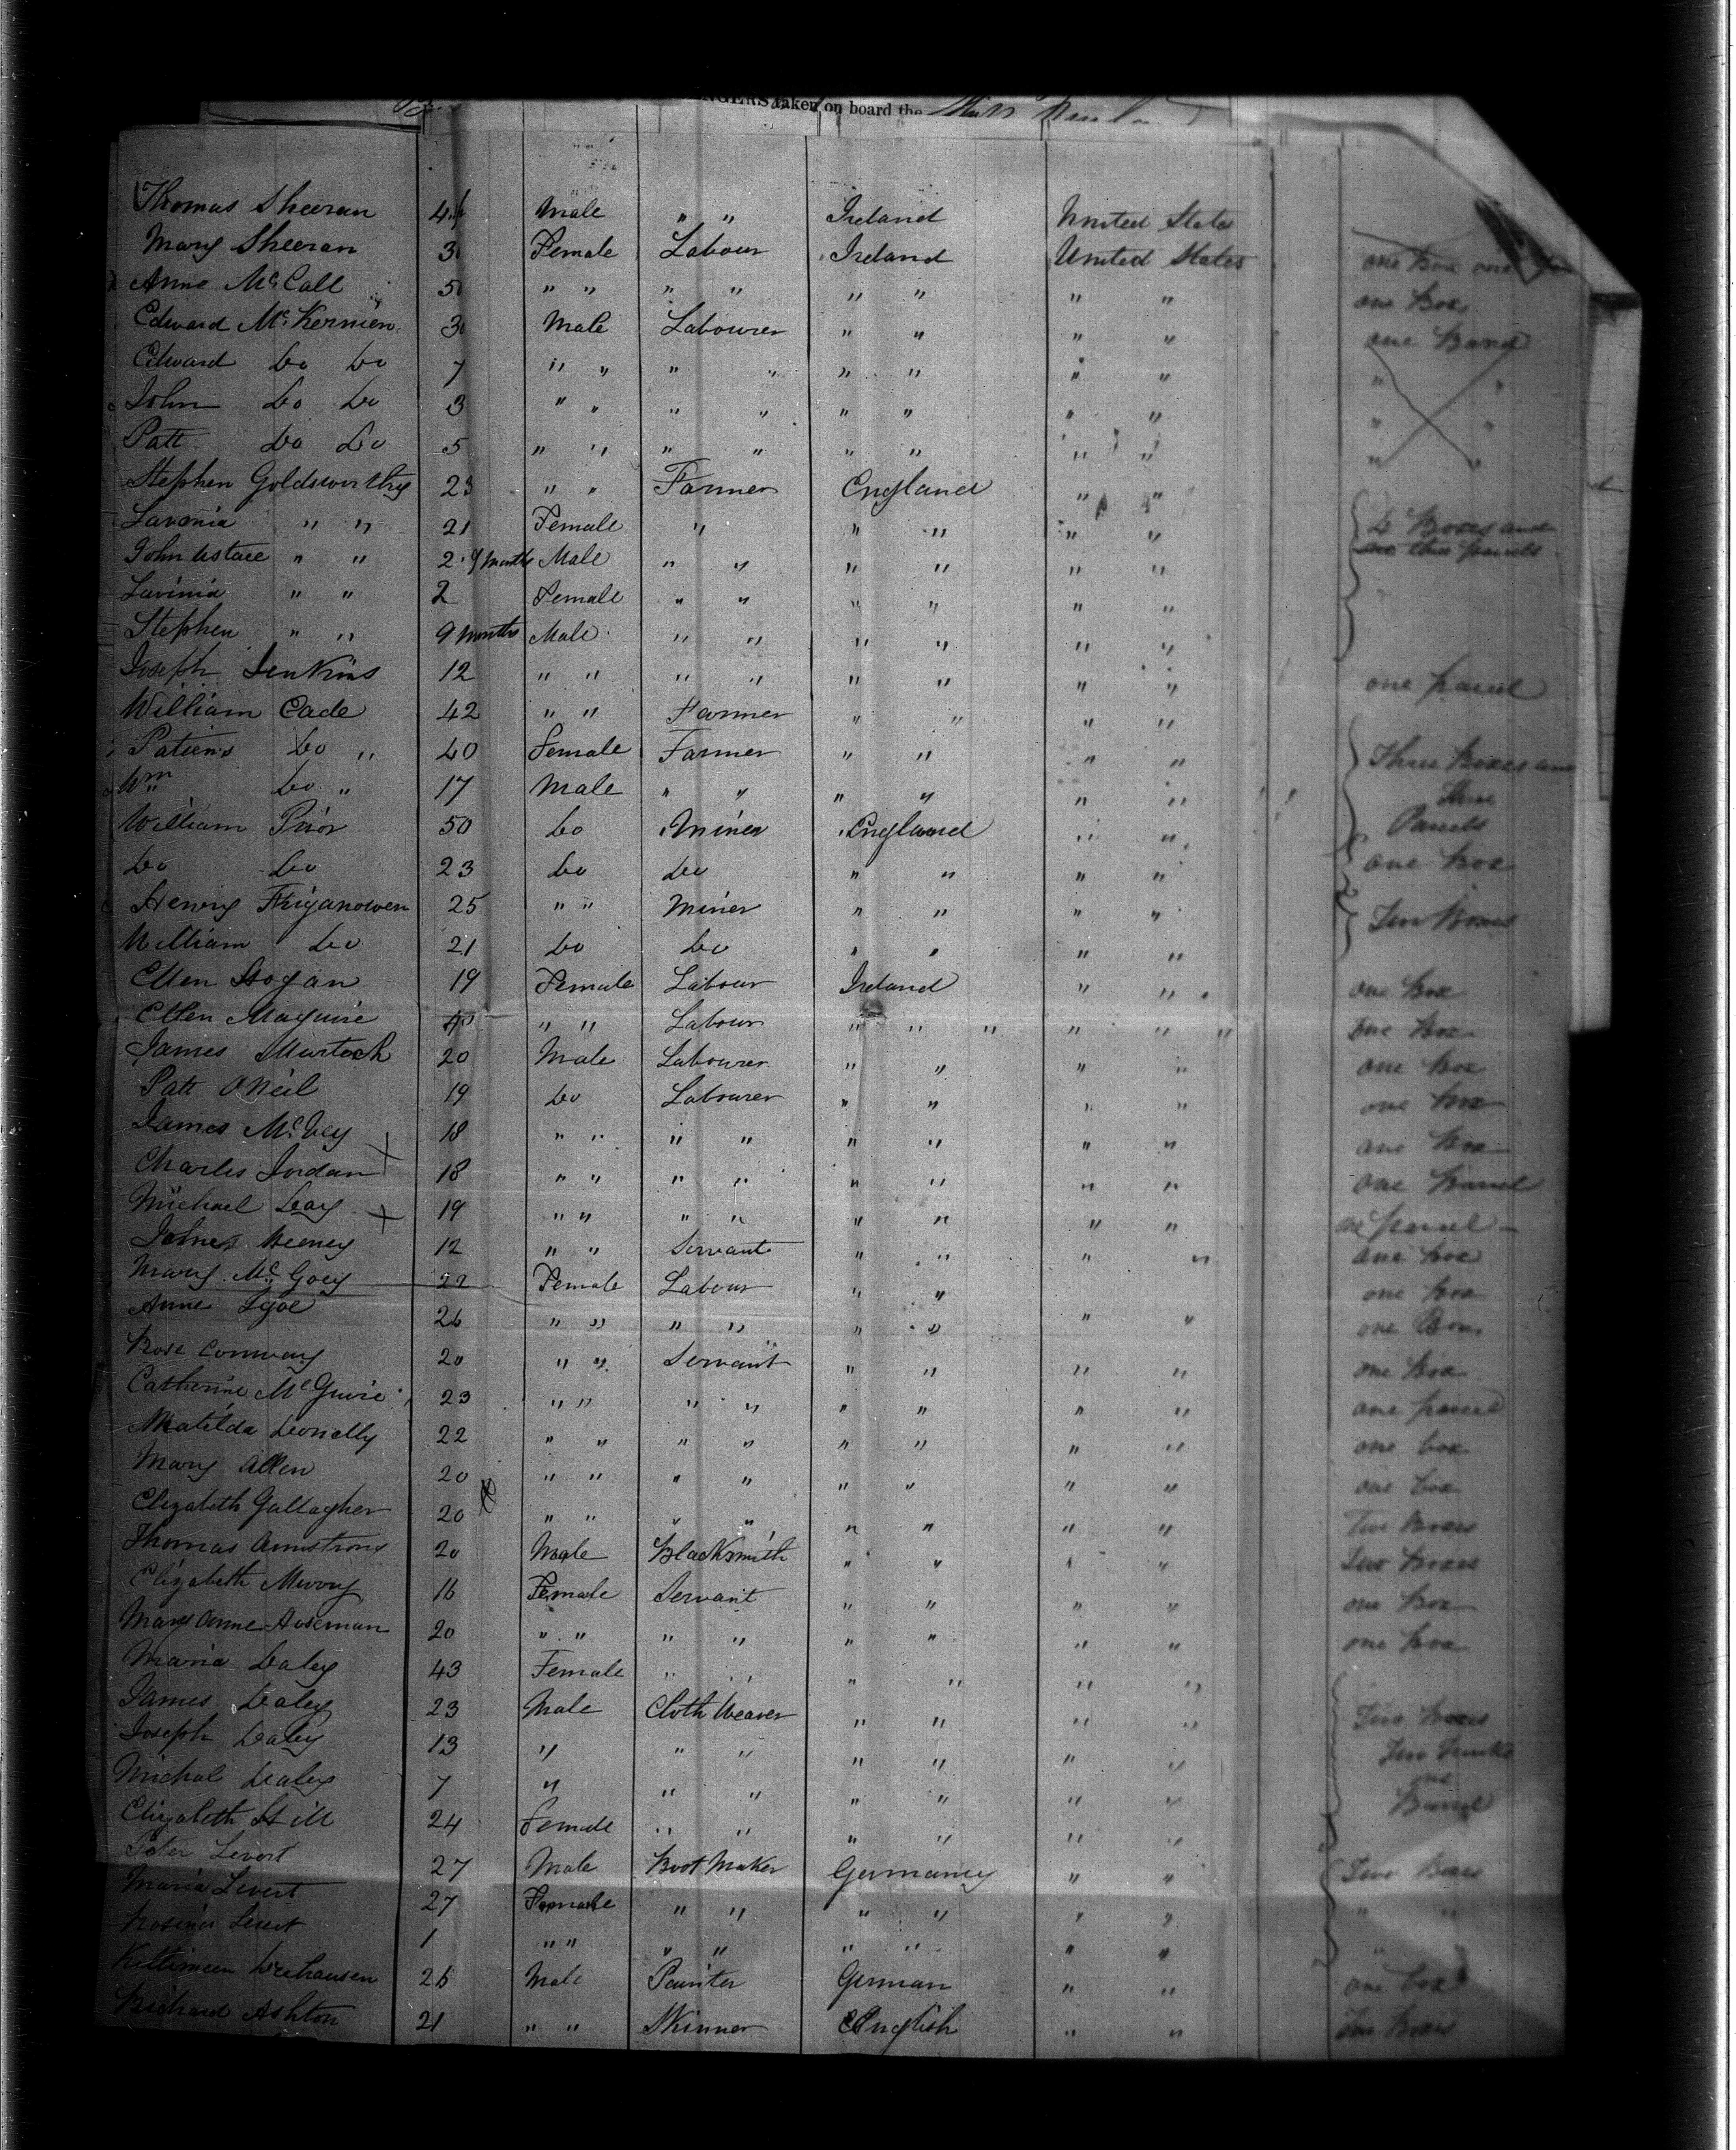 NGERS taken on board the
Thomas Sheeran Male " " Ireland United State
Mary Sheeran 3 Female Labour Ireland United States one Box one
Anne McCall 5 " " " " " " " " one Box
Edward McKernien 3 Male Labourer " " " " one
Edward Do Do 7 " " " " " " " " " "
John Do Do 3 " " " " " " " " " "
Patt Do Do 5 " " " " " " " " " "
Stephen Goldsworthy 23 " " Farmer England " "
Lavonia " " 21 Female " " " " " Boxes and
John ustace " " 2 9 Months Male " " " " " " three parcels
Lavinia " " 2 Female " " " " " "
Stephen " " 9 Months Male " " " " " "
Joseph Jenkins 12 " " " " " " " " one parcel
William Cade 42 " " Farmer " " " "
Patiens Do " 40 Female Farmer " " " " Three Boxes and
Wm Do " 17 Male " " " " " " three
William Prior 50 Do Miner England " " Parcels
Do Do 23 Do Do " " " " one Box
Henry Friganowen 25 " " Miner " " " "
William Do 21 Do Do " " " " Two Boxes
Ellen Hogan 19 Female Labour Ireland " " one Box
Ellen Maguire " " Labour " " " " " " one Box
James Murtock 20 Male Labourer " " " " one Box
Patt ONeil 19 Do Labourer " " " " one Box
James McVey 18 " " " " " " " " one Box
Charles Jordan 18 " " " " " " " " one
Michael Day 19 " " " " " " " " one parcel
James Meeney 12 " " Servant " " " " one Box
Mary McGoey 22 Female Labour " " " " one Box
Anne Igoe 26 " " " " " " " " one Box
Rose Conway 20 " " Servant " " " " one Box
Catherine McGuire 23 " " " " " " " " one parcel
Matilda Donelly 22 " " " " " " " " one box
Mary Allen 20 " " " " " " " " one box
Elizabeth Gallagher 20 " " " " " " " " Two Boxes
Thomas Armstrong 20 Male Blacksmith " " " " Two Boxes
Elizabeth Murray 16 Female Servant " " " " one Box
Mary Anne Hoseman 20 " " " " " " " " one Box
Maria Daley 43 Female " " " " " "
James Daley 23 Male Cloth Weaver " " " " Two Boxes
Joseph Daley 13 " " " " " " " Two Trunks
Michal Daley 7 " " " " " " " one
Elizabeth Hill 24 Female " " " " " "
Peter Levert 27 Male Boot Maker Germaney " " Two Boxes
Maria Levert 27 Female " " " " " " " "
Rosina Levert 1 " " " " " " " "
26 Male Painter German " " one box
Richard Ashton 21 " " Skinner English " " Two Boxes